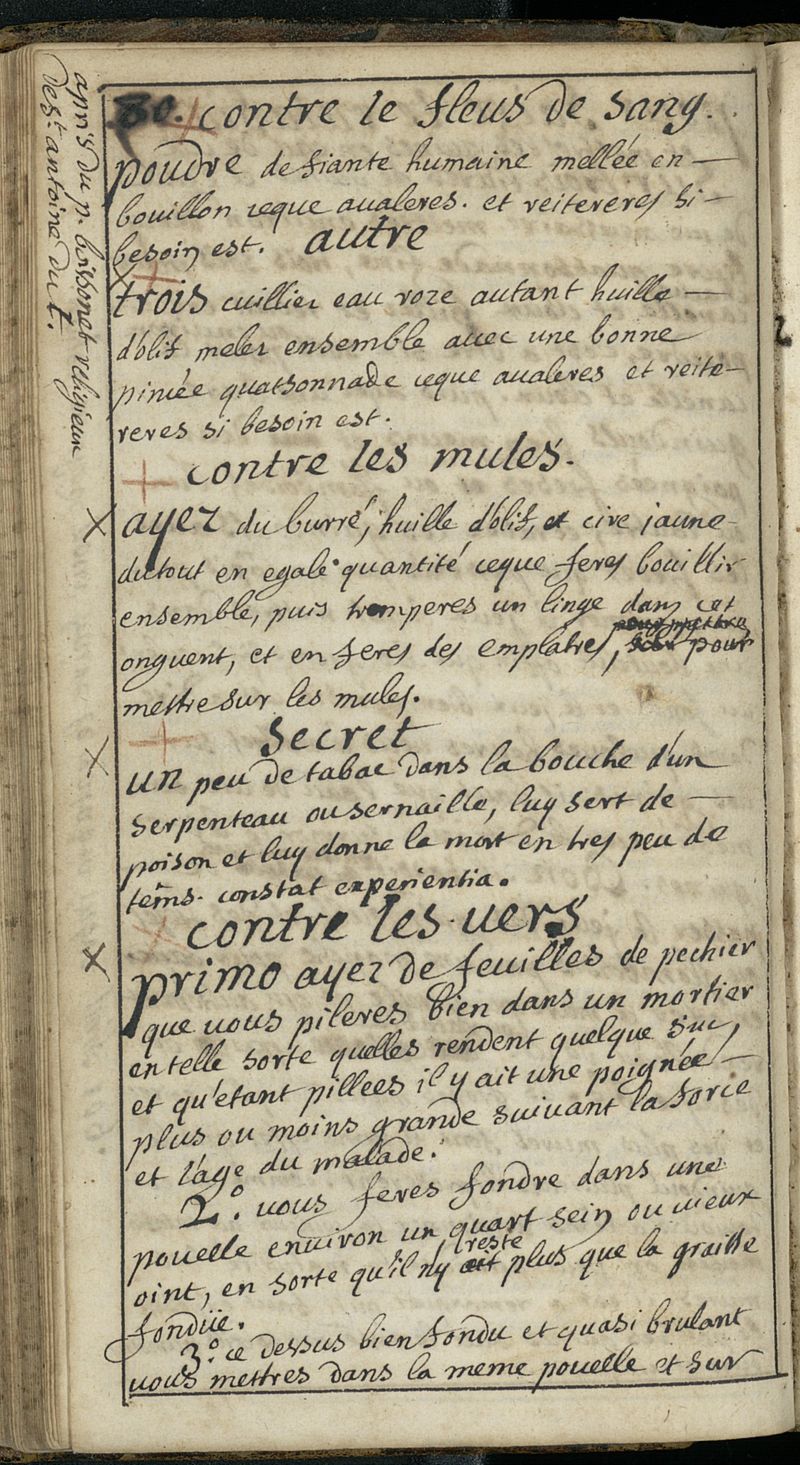 apris du p. boissonet religieux
de st antoine du t.
80. contre le fleus de sang.
poudre de fiante humaine mellée en
bouillon ceque avaleres. et reitereres si
besoin est. autre
trois cuillier eau roze autant huille
d'olif meler ensemble avec une bonne
pincée quassonnade ceque avaleres et reite-
reres si besoin est.
contre les mules.
ayez du burré, huille d'olif, et cire jaune
du tout en egale quantité ceque feres bouillir
ensemble, puis tremperes un linge dans cet
onguent, et en feres des emplatres, pour
mettre sur les mules.
secret
un peu de tabac dans la bouche d'un
serpenteau ou sernaille, luy sert de
poison et luy donne la mort en tres peu de
tems. constat experientia.
contre les vers
primo ayez de feuilles de pechier
que vous pileres bien dans un mortier
en telle sorte quelles rendent quelque suc,
et qu'etant pillees il y ait une poignée
plus ou moins grande suivant la force
et l'age du malade.
2º. vous feres fondre dans une
pouelle environ un quart sein ou vieux
oint, en sorte qu'il n'y reste plus que la graisse
fondüe.
3º. ce dessus bien fondu et quasi brulant
vous mettres dans la meme pouelle et sur